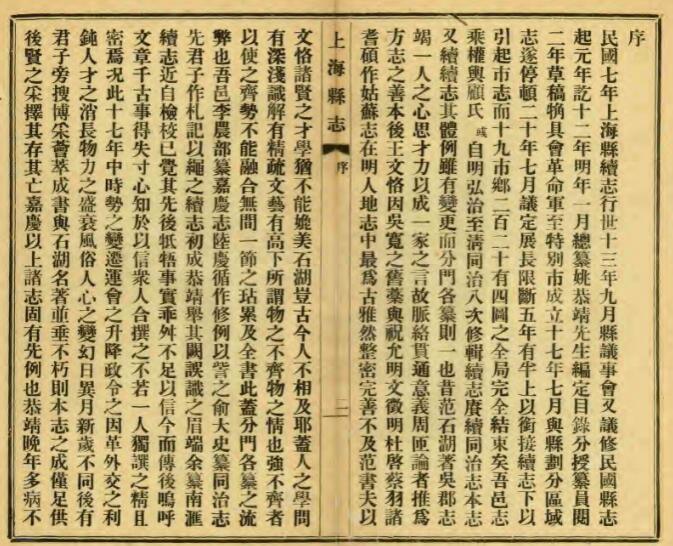 序
民國七年上海縣續志行世十三年九月縣議事會又議修民國縣志
起元年訖十二年明年一月總纂姚恭靖先生編定目錄分授纂員閱
二年草稿犓具會革命軍至特別市成立十七年七月與縣劃分區域
志遂停頓二十年七月議定展長限斷五年有半上以銜接續志下以
引起市志而十九市鄉二百二十有四圖之全局完全結束矣吾邑志
乘權輿顧氏或自明弘治至淸同治八次修輯續志賡續同治志本志
又續續志其體例雖有變更而分門各纂則一也昔范石湖著吳郡志
竭一人之心思才力以成一家之言故脈絡貫通意義周匝論者推爲
方志之善本後王文恪因吳寬之舊藁與祝允明文徵明杜啓蔡羽諸
耆碩作姑蘇志在明人地志中最爲古雅然整密完善不及范書夫以
上海縣志
序
二
文恪諸賢之才學猶不能媲美石湖豈古今人不相及耶蓋人之學問
有深淺識解有精疏文藝有高下所謂物之不齊物之情也強不齊者
以使之齊勢不能融合無間一節之玷累及全書此蓋分門各纂之流
弊也吾邑李農部纂嘉慶志陸慶循作修例以訾之俞大史纂同治志
先君子作札記以繩之續志初成恭靖舉其闕誤識之眉端余纂南滙
續志近自檢校已覺其先後牴牾事實乖舛不足以信今而傳後嗚呼
文章千古事得失寸心知於以信衆人合撰之不若一人獨譔之精且
密焉况此十七年中時勢之變遷運會之升降政令之因革外交之利
鈍人才之消長物力之盛衰風俗人心之變幻日異月新歲不同後有
君子旁搜博采薈萃成書與石湖名著並垂不朽則本志之成僅足供
後賢之采擇其存其亡嘉慶以上諸志固有先例也恭靖晚年多病不